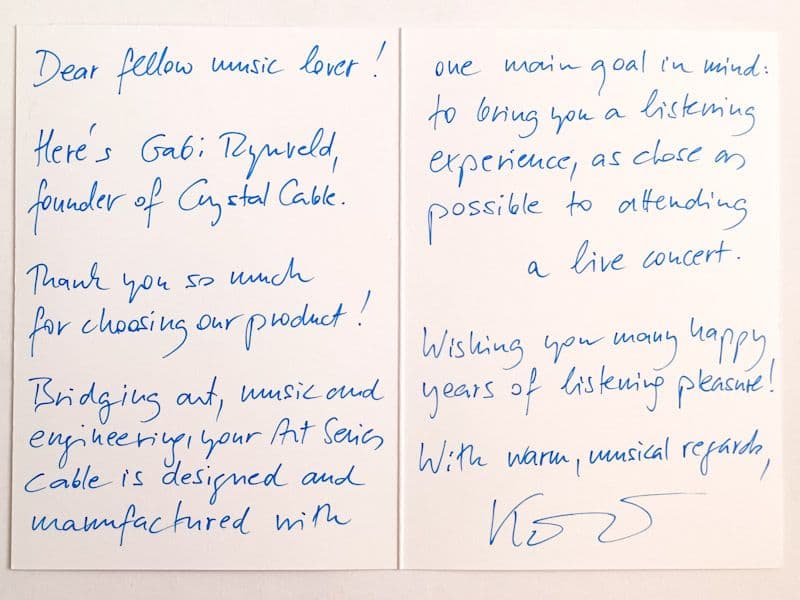 Dear fellow music lover!
Here's Gabi Rynveld,
founder of Crystal Cable.
Thank you so much
for choosing our product!
Bridging art, music and
engineering, your Art Series
Cable is designed and
manufactured with
one main goal in mind:
to bring you a listening
experience, as close as
possible to attending
a live concert.
Wishing you many happy
years of listening pleasure!
With warm, musical regards,